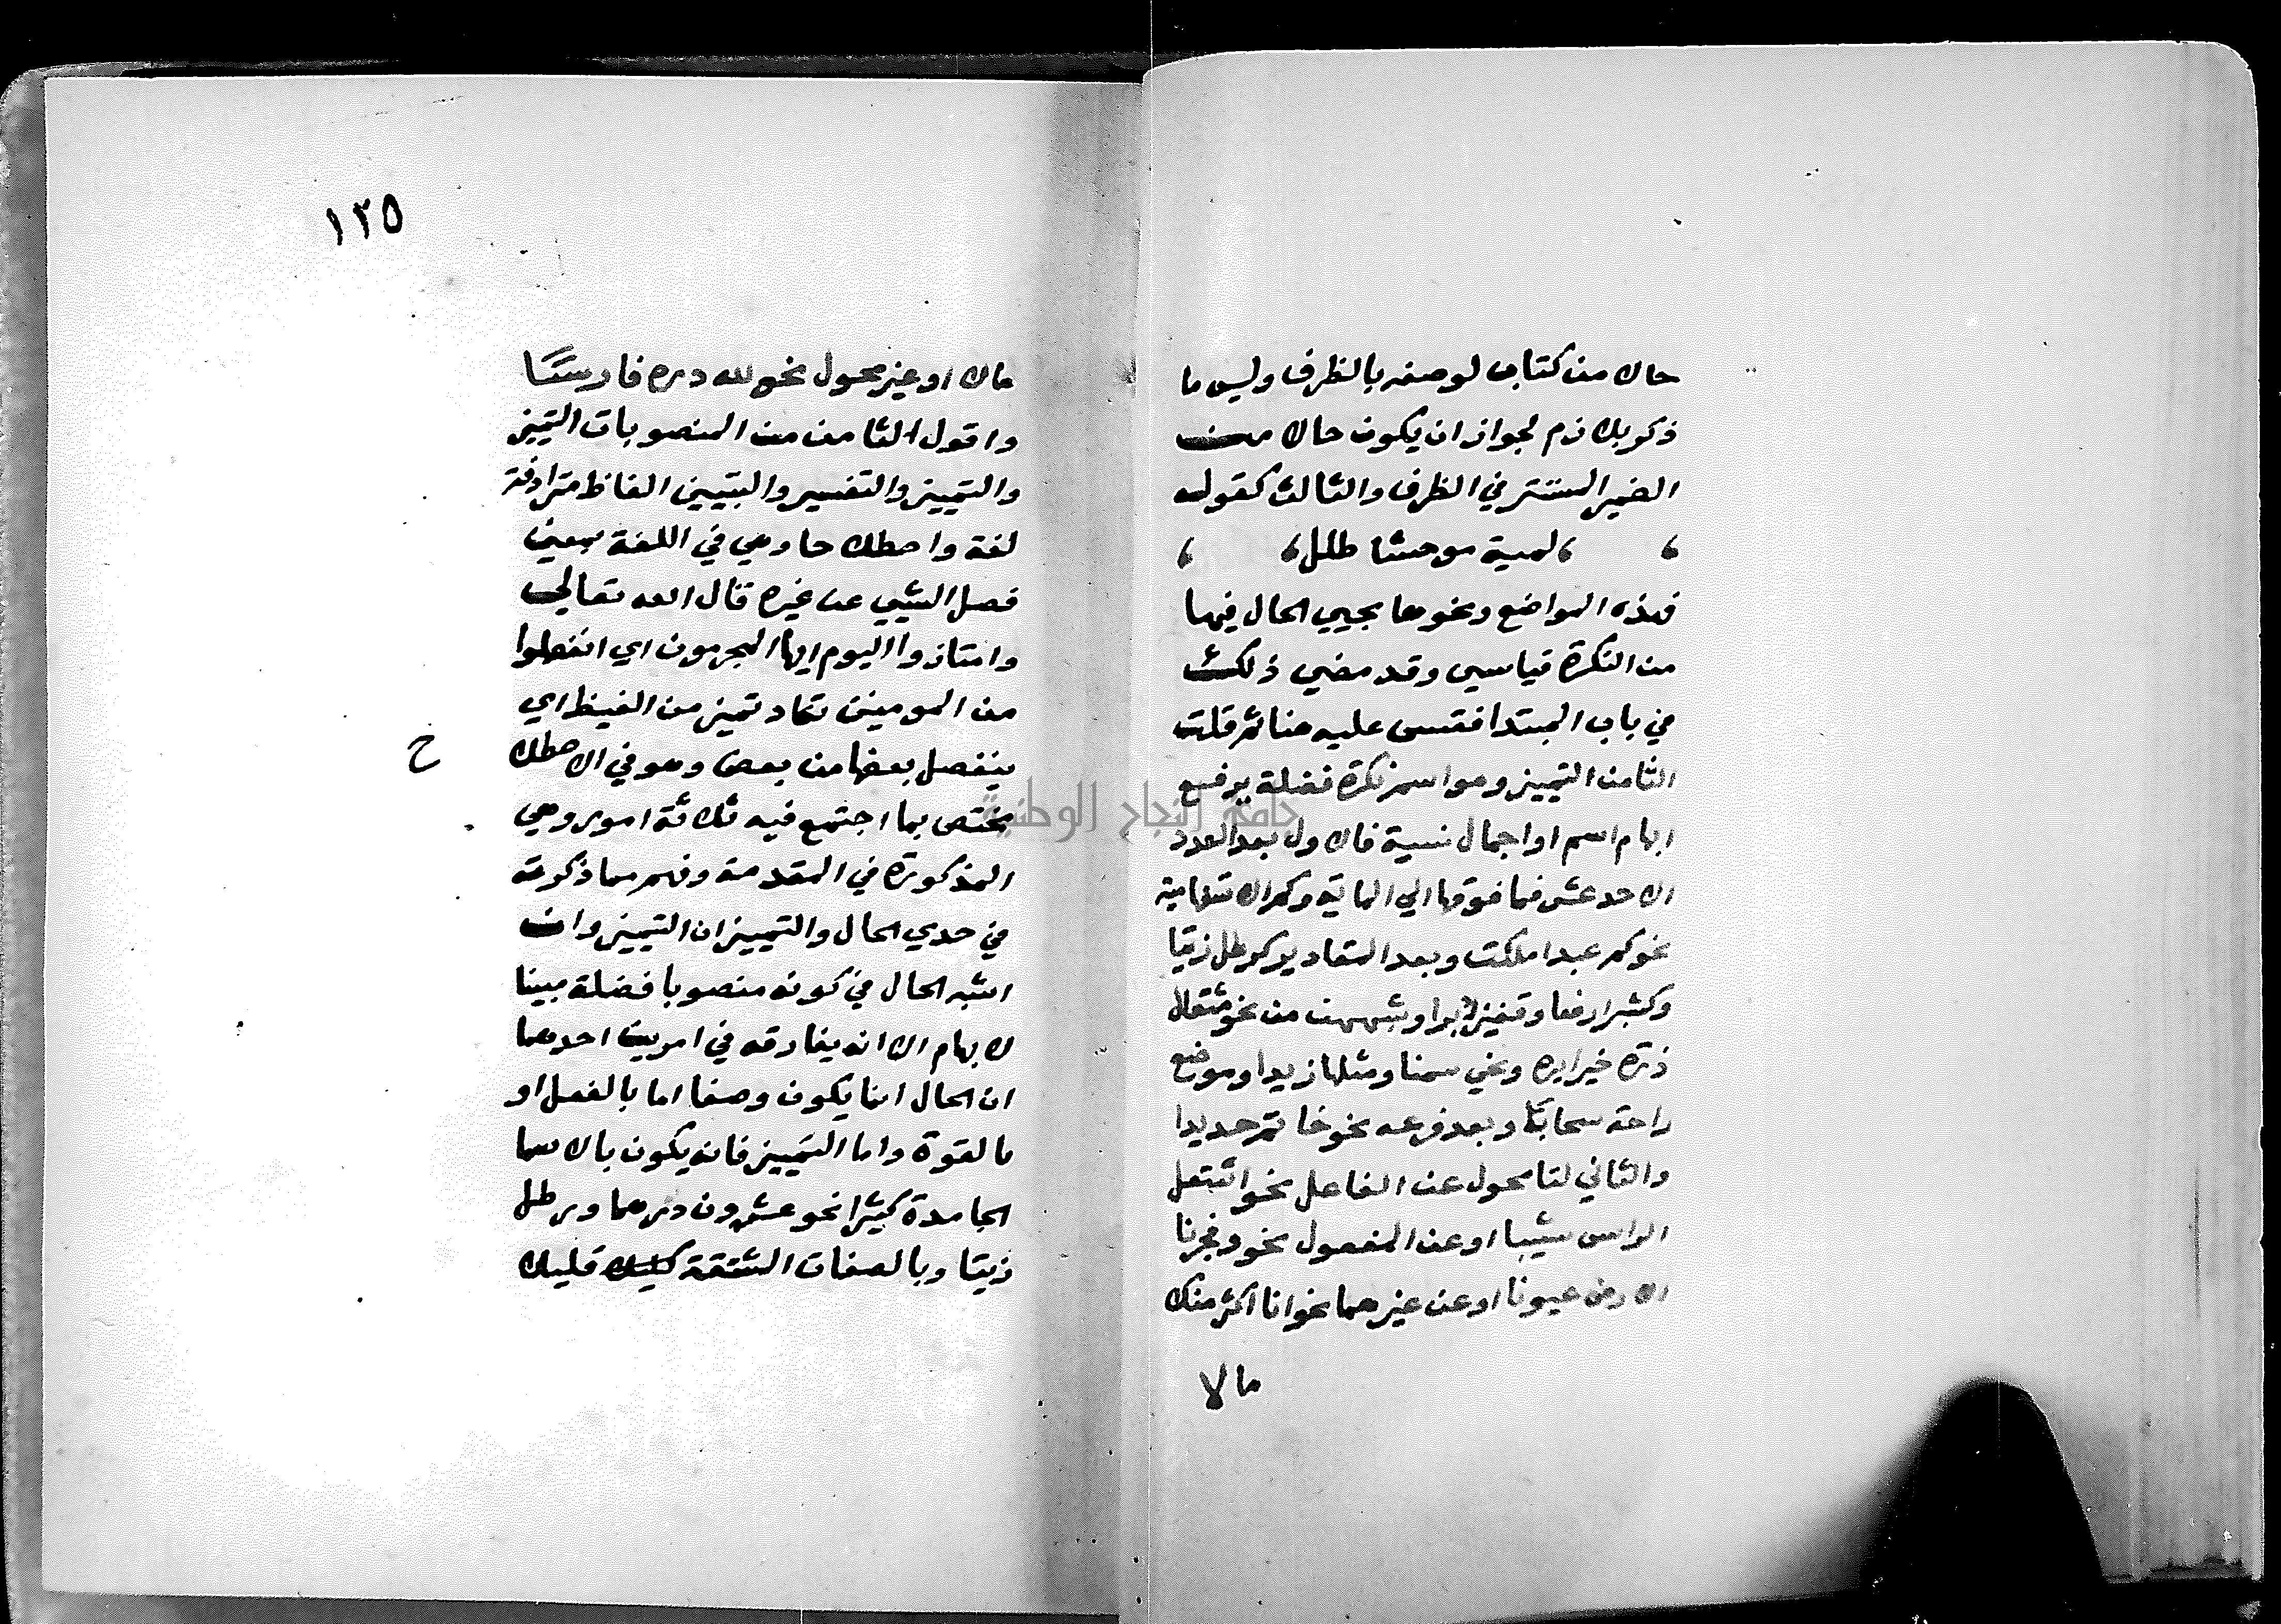 حالا من كتاب لوصفه بالظرف وليس ما
ذكر بلازم لجواز ان يكون حالا من
الضمير المستتر في الظرف والثالث كقوله
، ، لمية موحشا طلل ، ،
فهذه المواضع ونحوها يجيي الحال فيها
من النكرة قياسي وقد مضي ذلك
في باب المبتدا فقس عليه هنا ثم قلت
الثامن التمييز وهو اسم نكرة فضلة يرفع
ابهام اسم او اجمال نسبة فالاول بعد العدد
الاحد عشر فما فوقها الي الماية وكم الاستفهامية
نحو كم عبدا ملكت وبعد المقادير كرطل زيتا
وكشبر ارضا وقفيز برا وشبههن من نحو مثقال
ذرة خيرا يره ونحي سمنا ومثلها زبدا وموضع
راحة سحابا وبعد فرعه نحو خاتم حديدا
والثاني اما محول عن الفاعل نحو اشتعل
الراس شيبا او عن المفعول نحو وفجرنا
الارض عيونا او عن غيرهما نحو انا اكثر منك
مالا
١٢٥
مالا او غير محول نحو لله دره فارسا
واقول الثامن من المنصوبات التمييز
والتمييز والتفسير والتبيين الفاظ مترادفة
لغة واصطلاحا وهي في اللغة بمعني
فصل الشيي عن غيره قال الله تعالي
وامتازوا اليوم ايها المجرمون اي انفصلوا
من المومنين تكاد تميز من الغيظ اي
ينفصل بعضها من بعض وهو في الاصطلا
ح
مختص بما اجتمع فيه ثلاثة امور وهي
المذكورة في المقدمة وفهم مما ذكرته
في حدي الحال والتمييز ان التمييز وان
اشبه الحال في كونه منصوبا فضلة مبينا
لابهام الا انه يفارقه في امرين احدهما
ان الحال انما يكون وصفا اما بالفعل او
بالقوة واما التمييز فانه يكون بالاسما
الجامدة كثيرا نحو عشرون درهما ورطل
زيتا وبالصفات المشتقة قليلا
جامعة النجاح الوطنية